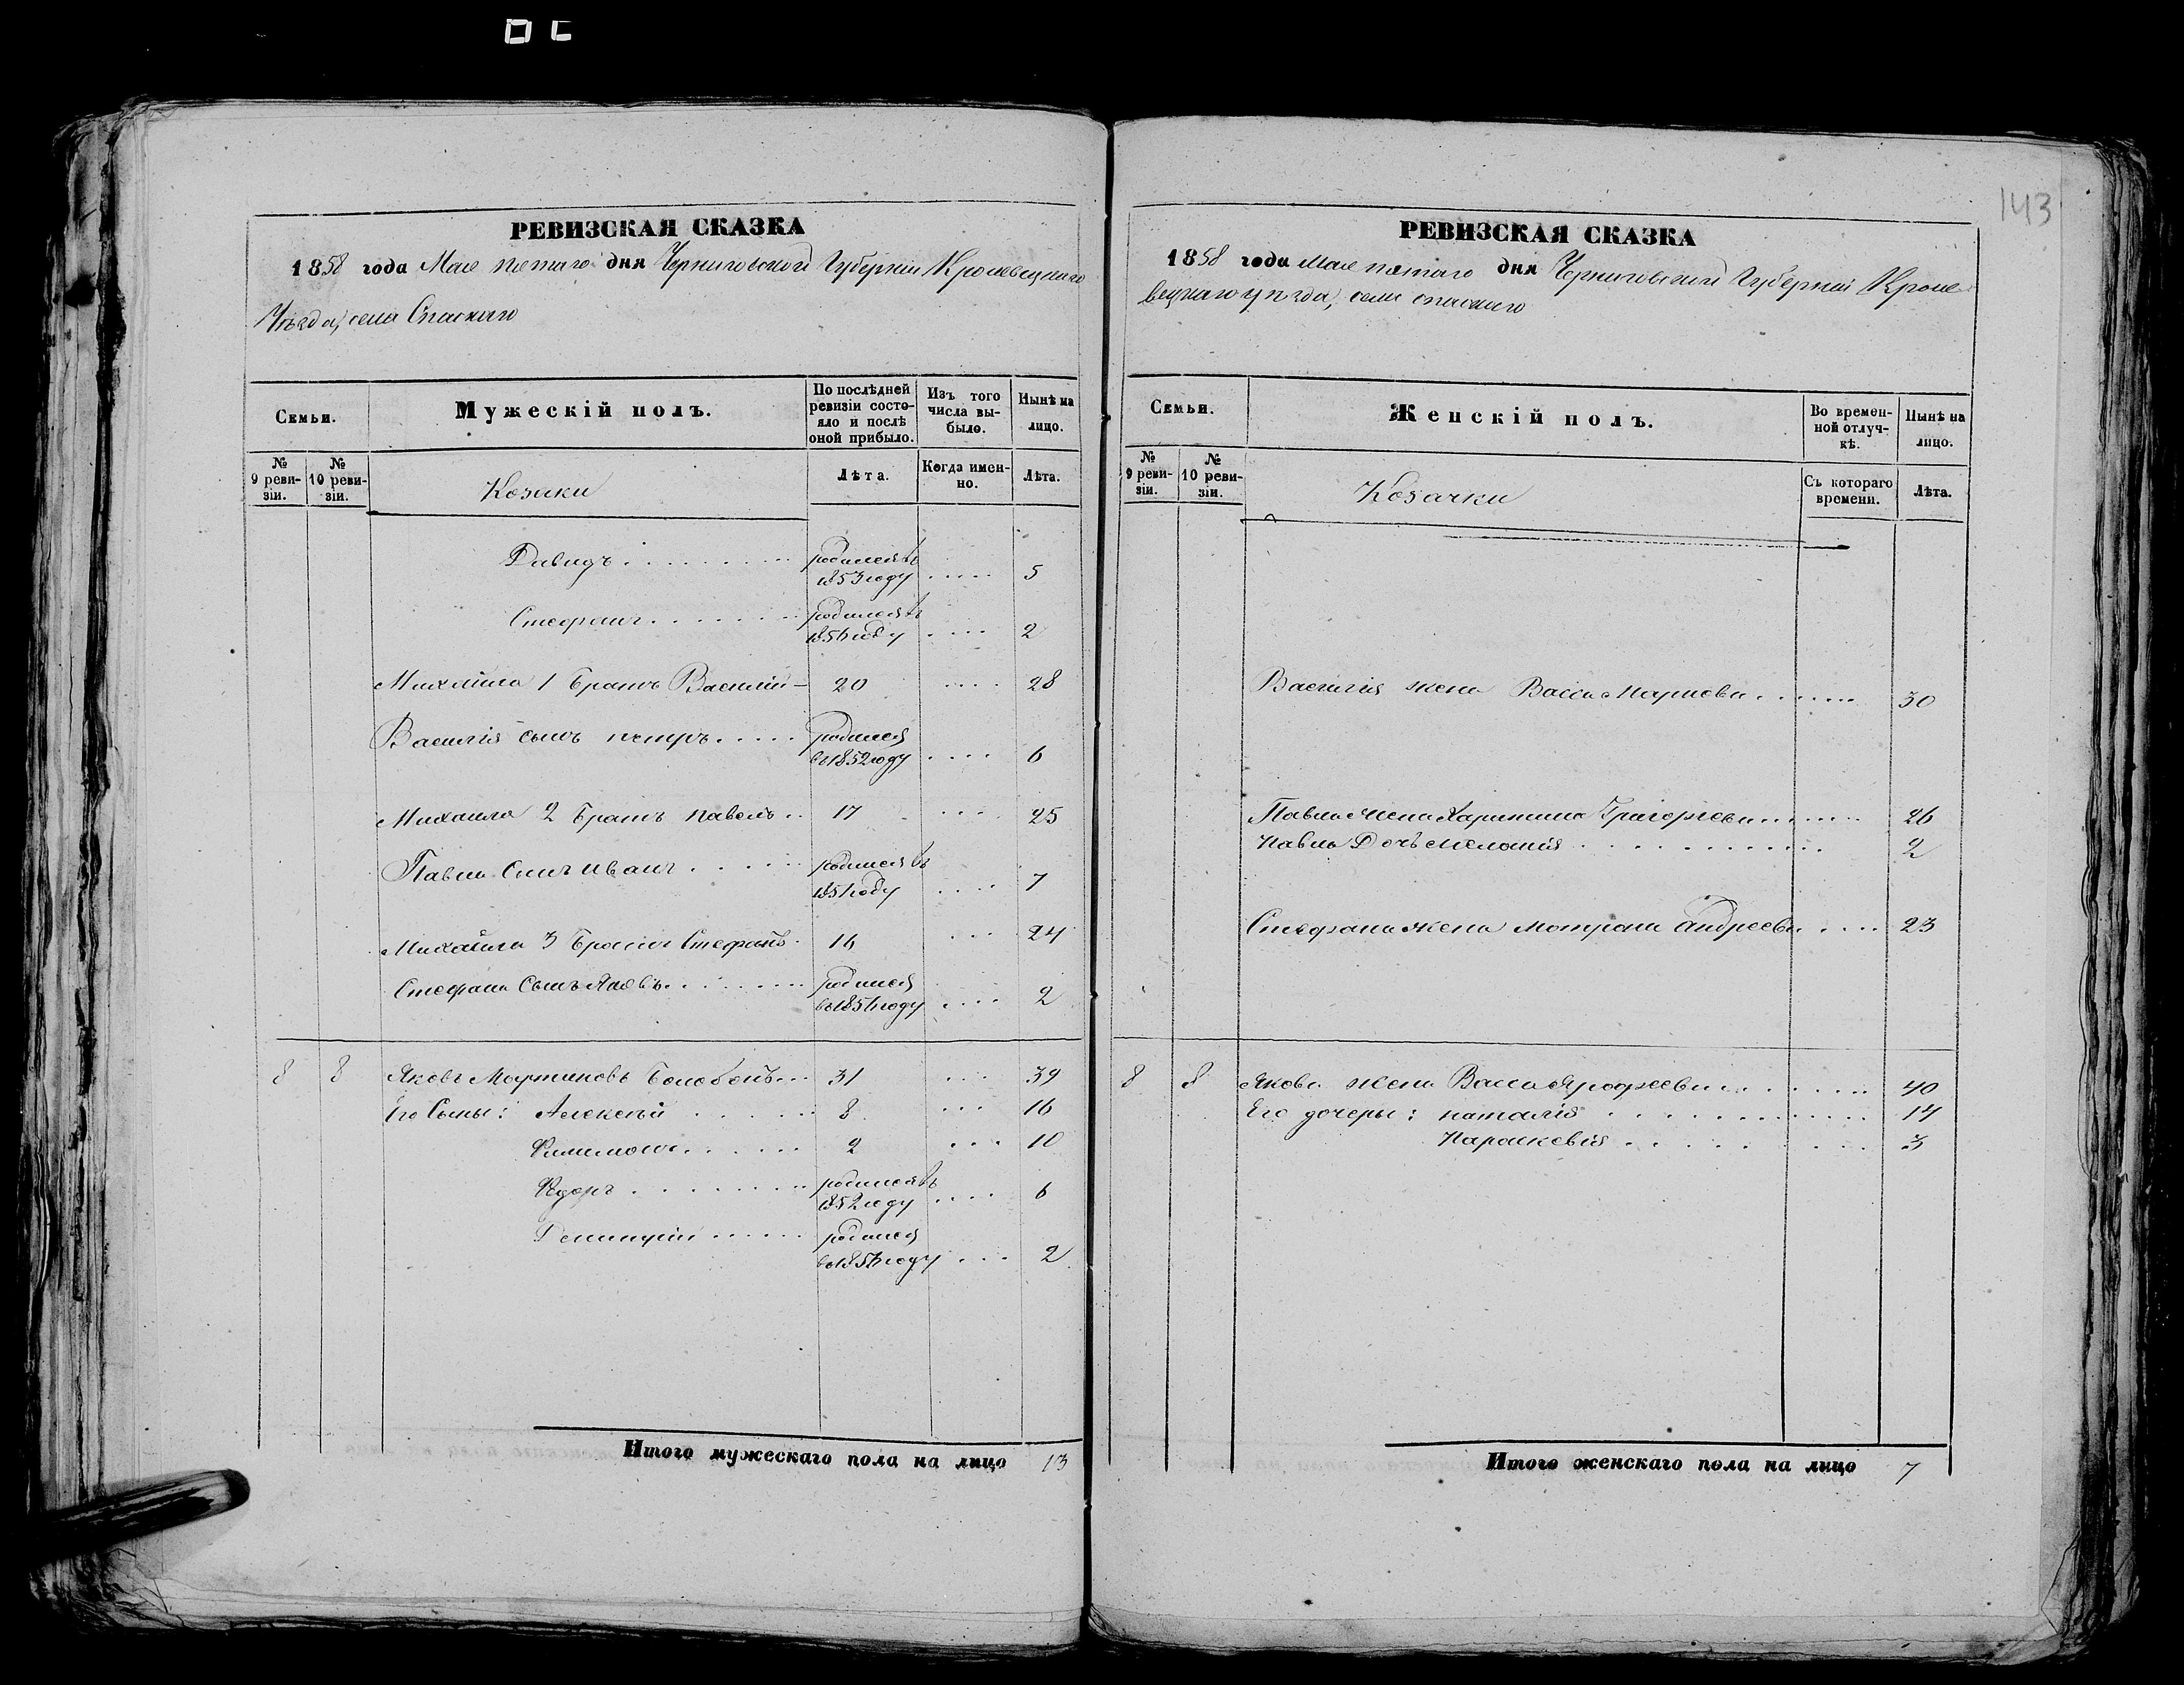 143
РЕВИЗСКАЯ СКАЗКА
1858 года Мая пятаго дня Черниговской Губерніи Кролевецкаго
Уѣзда, села Спаскаго
Семьи.
Мужескій полъ.
По послѣдней ревизіи состояло и послѣ оной прибыло.
Изъ того числа выбыло.
Нынѣ на лицо.
№ 9 ревизіи.
№ 10 ревизіи.
Козаки
Лѣта.
Когда именно.
Лѣта.
Давидъ родился въ 1853 году 5
Стефанъ родился въ 1856 году 2
Михайла 1 братъ Василій 20 28
Василія сынъ петръ родился во 1852 году 6
Михаила 2 братъ павелъ 17 25
Павла сынъ иванъ родился въ 1851 году 7
Михайла 3 братъ Стефанъ 16 24
Стефана сынъ Яковъ родился во 1856 году 2
8 8 Яковъ Мартиновъ 31 39
Его сыны: Алексѣй 8 16
Филимонъ 2 10
Федоръ родился въ 1852 году 6
родился 2
Итого мужескаго пола на лицо 13
РЕВИЗСКАЯ СКАЗКА
1858 года Мая пятаго дня Черниговской Губерніи Кроле
вецкаго уѣзда, села спаскаго
Семьи.
Женскій полъ.
Во временной отлучкѣ.
Нынѣ на лицо.
№ 9 ревизіи.
№ 10 ревизіи.
Козачки
Съ котораго времени.
Лѣта.
Василія жена Васса 30
Павла жена Харитина Григорьева 26
Павла дочь меланія 2
Стефана жена Мотрона андреева 23
8 8 Якова жена Васса 40
Его дочеры: наталія 14
Параскевія 3
Итого женскаго пола на лицо 7